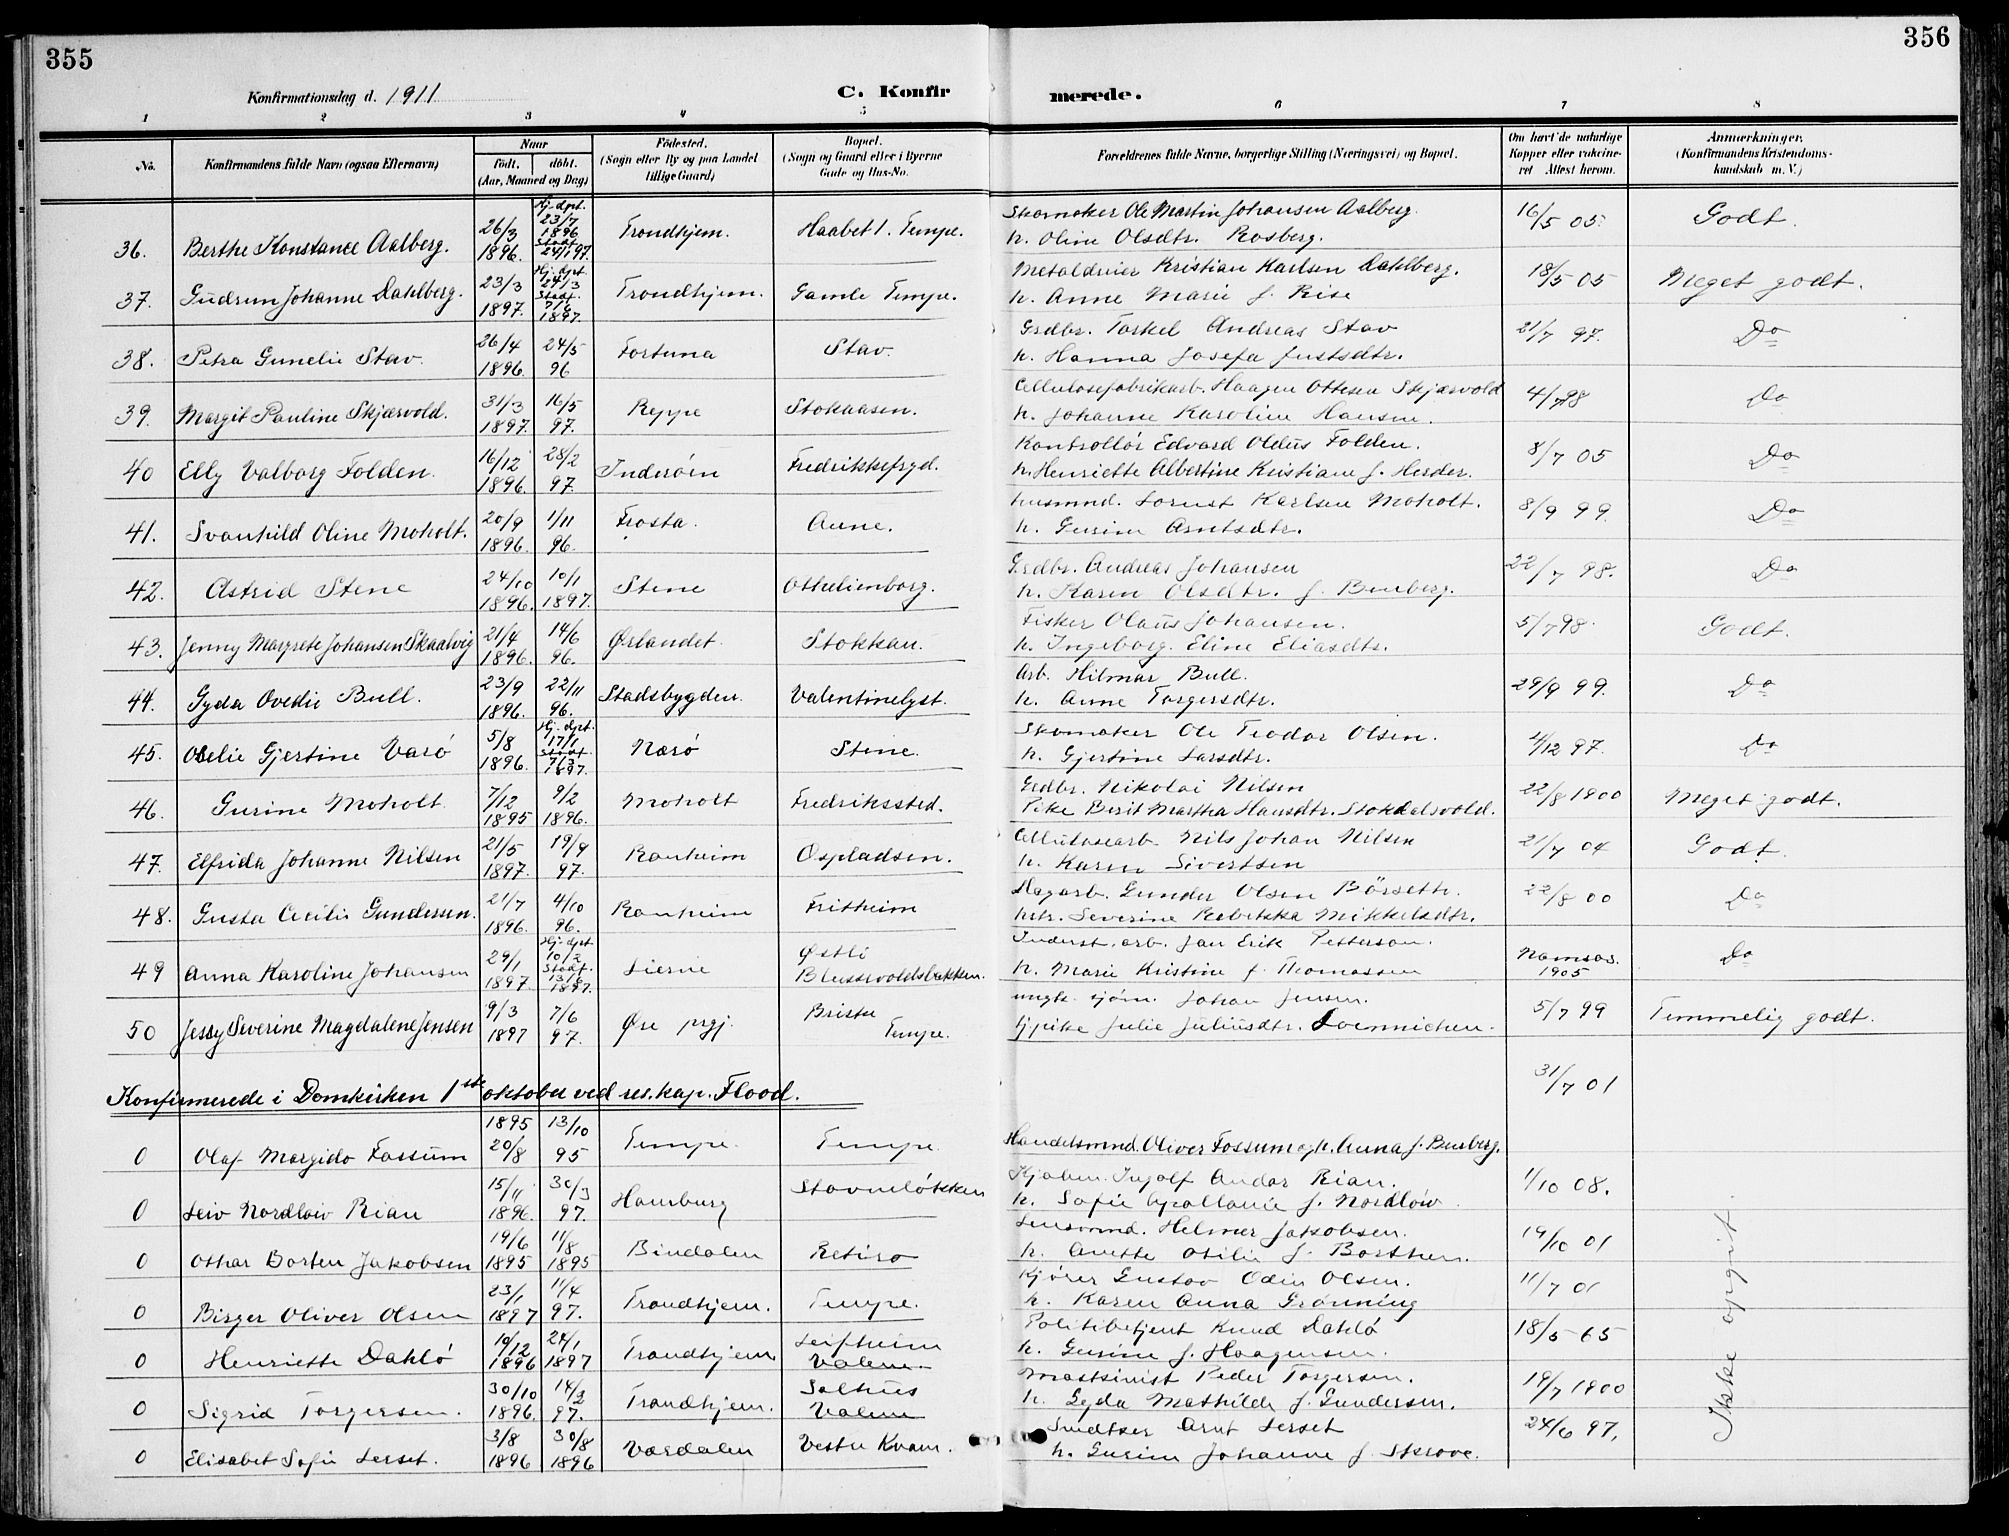 355
356
Konfirmationsdag d. 1911
C. Konfir merede.
1 2 3 4 5 6 7 8
No.
Konfirmandens fulde Navn (ogsaa Efternavn)
Naar
født. døbt.
(Aar, Maaned og Dag)
Fødested.
(Sogn eller By og paa Landet
tillige Gaard)
Bopæl.
(Sogn og Gaard eller i Byerne
Gade og Hus-No.
Forældrenes fulde Navne, borgerlige Stilling (Næringsvei) og Bopæl.
Om havt de naturlige
Kopper eller vakcine-
ret Attest herom.
Anmærkninger.
(Konfirmandens Kristendoms-
kundskab m. V.)
36. Berthe Konstance Aalberg. 26/3 1896. Hj. dpt. 23/7 1896 Stadf. 24/1 97. Trondhjem. Haabet 1. Tempe. Skomaker Ole Martin Johansen Aalberg. h. Oline Olsdtr. Rosberg. 16/5 05. Godt.
37. Gudrun Johanne Dahlberg. 23/3 1897. Hj. dpt. 24/3 Stadf. 7/6 1897. Trondhjem. Gamle Tempe. Metaldreier Kristian Karlsen Dahlberg. h. Anne Marie f. Rise 18/5 05 Meget godt.
38. Petra Gunelie Stav. 26/4 1896. 24/5 96 Fortuna Stav. Grdbr. Torkel Andreas Stav h. Hanna Josefa Justsdtr. 21/7 97. Do
39. Margit Pauline Skjærvold. 31/3 1897. 16/5 97. Reppe Stokaasen. Cellulosefabrikarb. Haagen Ottesen Skjærvold h. Johanne Karoline Hansen. 4/7 98 Do
40 Elly Valborg Folden. 16/12 1896. 28/2 97. Inderøen Fredrikkefryd. Kontrollør Edvard Oldus Folden. h. Henriette Albertine Kristiane f. Herder. 8/7 05 Do
41. Svanhild Oline Moholt. 20/9 1896. 1/11 96. Frosta. Aune. Husmnd. Lornts Karlsen Moholt. h. Gurine Arntsdtr. 8/9 99. Do
42. Astrid Stene 24/10 1896. 10/1 1897. Stene Othelienborg. Grdbr. Andreas Johansen h. Karen Olsdtr. f. Buuberg. 22/7 98. Do
43. Jenny Margrete Johansen Skaalvig 21/4 1896. 14/6 96. Ørlandet. Stokkan. Fisker Olaus Johansen. h. Ingeborg Eline Eliasdtr. 5/7 98. Godt.
44. Gyda Ovedie Bull. 23/9 1896. 22/11 96. Stadsbygden. Valentinelyst. Arb. Hilmar Bull. h. Anne Torgersdtr. 29/9 99. Do
45. Oselie Gjertine Varø 5/8 1896. Hj. dpt. 17/1 Stadf. 7/3 1897. Nærø Stene. Skomaker Ole Teodor Olsen. h. Gjertine Larsdtr. 4/12 97. Do
46. Gurine Moholt 7/12 1895 9/2 1896. Moholt Fredrikssted. Grdbr. Nikolai Nilsen Pike Berit Martha Hansdtr. Stokdalsvold. 22/8 1900 Meget godt.
47. Elfrida Johanne Nilsen 21/5 1897. 19/9 97. Ranheim Ospladsen. Cellulosearb. Nils Johan Nilsen h. Karen Sivertsen 21/7 04 Godt.
48. Gusta Cecilie Gundersen. 21/7 1896. 4/10 96. Ranheim Fritheim Dagarb. Gunder Olsen Børseth. hstr. Severine Rebekka Mikkelsdtr. 22/8 00 Do
49 Anna Karoline Johansen 29/1 1897. Hj. dpt. 10/2 Stadf. 13/6 1897. Lierne Østli Blussvoldsbakken. Inderst. arb. Jan Erik Petterson. h. Marie Kristine f. Thomassen Namsos. 1905 Do
50 Jessy Severine Magdalene Jensen 9/3 1897 7/6 97. Øre prgj. Briske Tempe. ungk. sjøm. Johan Jensen. pike Julie Juliusdtr. Svennichen. 5/7 99 Temmelig godt.
Konfirmerede i Domkirken 1ste oktober ved res. kap. Flood.
31/7 01
0 Olaf Margido Fossum 1895 20/8 13/10 95 Tempe. Tempe. Handelsmnd. Oliver Fossum og h. Anna f. Buuberg.
0 Leiv Nordløiv Rian 15/11 1896. 30/3 97. Hamburg Stavneløkken Kjøbm. Ingolf Andor Rian. h. Sofie Apollonie f. Nordløiv 1/10 08.
0 Othar Borten Jakobsen 19/6 1895 11/8 1895 Bindalen Retiro Lensmnd. Helmer Jakobsen. h. Anette Otilie f. Borthen. 19/10 01
0 Birger Oliver Olsen 23/1 1897 11/4 97. Trondhjem. Tempe. Kjører Gustav Odin Olsen. h. Karen Anna Grønning 11/7 01
0 Henriette Dahlø 10/12 1896 24/1 1897 Trondhjem Leifheim Valene Politibetjent Knud Dahlø h. Gurine f. Haagensen. 18/5 05
0 Sigrid Torgersen. 30/10 1896. 14/2 97. Trondhjem. Solhus Valene Maskinist Peder Torgersen. h. Gyda Mathilde f. Gundersen. 19/7 1900
0 Elisabet Sofie Lerset. 3/8 1896 30/8 1896 Værdalen Vestre Kvam. Snedker Arnt Lerset h. Gurine Johanne f. Skrove. 24/6 97.
Ikke opgit.